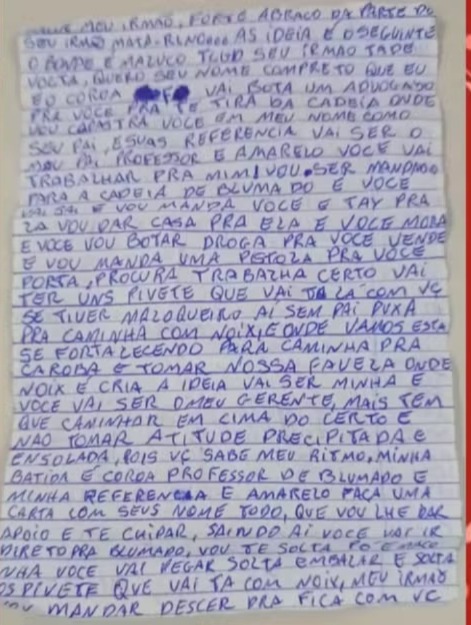 MEU IRMÃO, FORTE ABRAÇO DA PARTE DO
SEU IRMÃO MATA-RINDO AS IDEIA E O SEGUINTE
O BONDE E MALUCO TLUD SEU IRMÃO TADE
VOLTA, QUERO SEU NOME COMPRETO QUE EU
EU COROA VAI BOTA UM ADVOGADO
PRA VOCE PRA TE TIRA DA CADEIA ONDE
VOU CADASTRA VOCE EM MEU NOME COMO
SEU PAI, ESUAS REFERENCIA VAI SER O
MEU PAI PROFESSOR E AMARELO VOCE VAI
TRABALHAR PRA MIM, VOU SER MANDADO
PARA A CADEIA DE BLUMADO E VOCE
VAI SAI E VOU MANDA VOCE E TAY PRA
LA VOU DAR CASA PRA ELA E VOCE MORA
E VOCE VOU BOTAR DROGA PRA VOCE VENDE
E VOU MANDA UMA PESTOLA PRA VOCE
PORTA, PROCURA TRABALHA CERTO VAI
TER UNS PIVETE QUE VAI TA LA COM VC
SE TIVER MALOQUEIRO AI SEM PAI PUXA
PRA CAMINHA COM NOIX, E ONDE VAMOS ESTA
SE FORTALECENDO PARA CAMINHA PRA
CAROBA E TOMAR NOSSA FAVELA ONDE
NOIX E CRIA A IDEIA VAI SER MINHA E
VOCE VAI SER O MEU GERENTE, MAIS TEM
QUE CAMINHAR EM CIMA DO CERTO E
NÃO TOMAR ATITUDE PRECIPITADA E
ENSOLADA, POIS VC SABE MEU RITMO, MINHA
BATIDA E COROA PROFESSOR DE BLUMADO E
MINHA REFERENCIA E AMARELO FAÇA UMA
CARTA COM SEUS NOME TODO, QUE VOU LHE DAR
APOIO E TE CUIDAR, SAINDO AI VOCE VAI IR
DIRETO PRA BLUMADO, VOU TE SOLTA PÓ E MACO
NHA VOCE VAI PEGAR SOLTA EMBALAR E SOLTA
OS PIVETE QUE VAI TA COM NOIX, MEU IRMÃO
VOU MANDAR DESCER PRA FICA COM VC